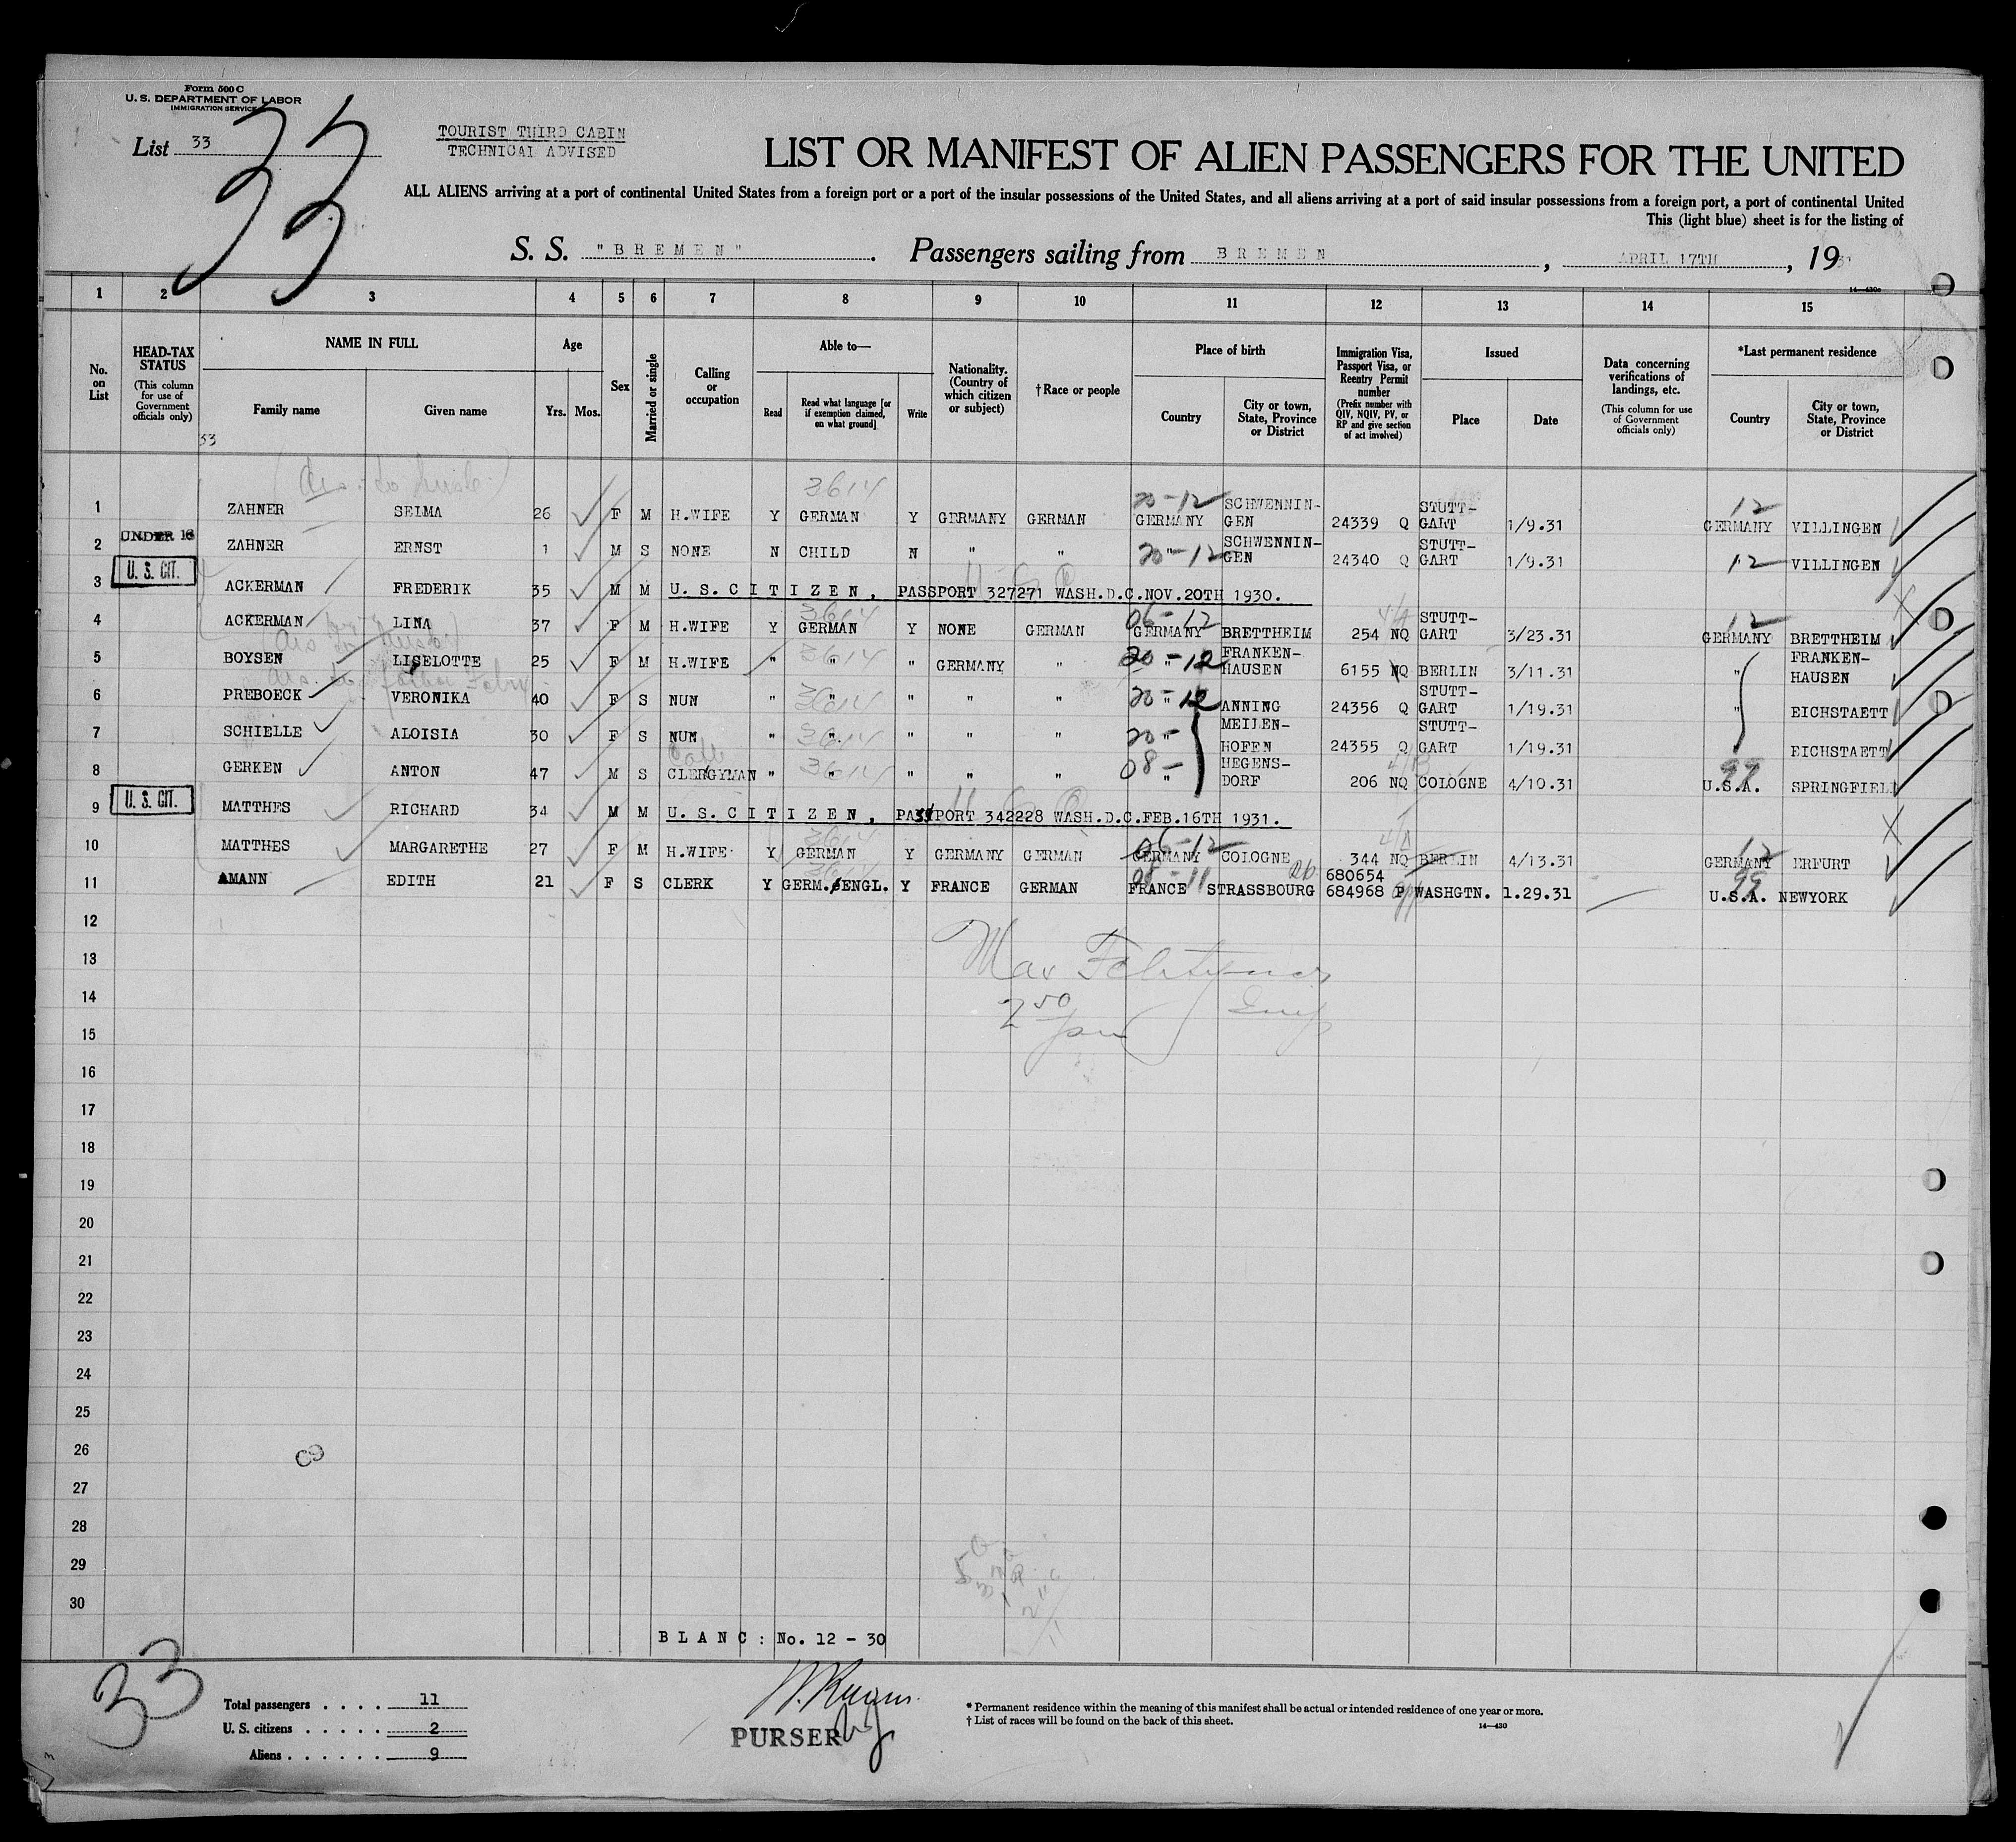 Form 500 C
U. S. DEPARTMENT OF LABOR
IMMIGRATION SERVICE
List 33
33
TOURIST THIRD CABIN
TECHNICAL ADVISED
LIST OR MANIFEST OF ALIEN PASSENGERS FOR THE UNITED
ALL ALIENS arriving at a port of continental United States from a foreign port or a port of the insular possessions of the United States, and all aliens arriving at a port of said insular possessions from a foreign port, a port of continental United
This (light blue) sheet is for the listing of
S. S. "BREMEN". Passengers sailing from BREMEN, APRIL 17TH, 1931
14—430c
1 2 3 4 5 6 7 8 9 10 11 12 13 14 15
No. on List
HEAD-TAX STATUS (This column for use of Government officials only)
NAME IN FULL Family name Given name
Age Yrs. Mos.
Sex
Married or single
Calling or occupation
Able to— Read Read what language [or if exemption claimed, on what ground] Write
Nationality. (Country of which citizen or subject)
† Race or people
Place of birth Country City or town, State, Province or District
Immigration Visa, Passport Visa, or Reentry Permit number (Prefix number with QIV, NQIV, PV, or RP and give section of act involved)
Issued Place Date
Data concerning verifications of landings, etc. (This column for use of Government officials only)
*Last permanent residence Country City or town, State, Province or District
33
3614 20-12 12
1 ZAHNER SELMA 26 F M H.WIFE Y GERMAN Y GERMANY GERMAN GERMANY SCHWENNIN-GEN 24339 Q STUTT-GART 1/9.31 GERMANY VILLINGEN
UNDER 16
2 ZAHNER ERNST 1 M S NONE N CHILD N " " 20-12 " SCHWENNIN-GEN 24340 Q STUTT-GART 1/9.31 12 VILLINGEN
U. S. CIT.
3 ACKERMAN FREDERIK 35 M M U.S.CITIZEN, PASSPORT 327271 WASH.D.C.NOV.20TH 1930.
3614 06-12 12
4 ACKERMAN LINA 37 F M H.WIFE Y GERMAN Y NONE GERMAN GERMANY BRETTHEIM 254 NQ STUTT-GART 3/23.31 GERMANY BRETTHEIM
5 BOYSEN LISELOTTE 25 F M H.WIFE " " 3614 " GERMANY " 20-12 " FRANKEN-HAUSEN 6155 NQ BERLIN 3/11.31 " FRANKEN-HAUSEN
6 PREBOECK VERONIKA 40 F S NUN " " 3614 " " " 20-12 " ANNING 24356 Q STUTT-GART 1/19.31 " EICHSTAETT
7 SCHIELLE ALOISIA 30 F S NUN " " 3614 " " " 20- " MEILEN-HOFEN 24355 Q STUTT-GART 1/19.31 EICHSTAETT
8 GERKEN ANTON 47 M S CLERGYMAN " " 3614 " " " 08- " HEGENS-DORF 206 NQ COLOGNE 4/10.31 99 U.S.A. SPRINGFIELD
U. S. CIT.
9 MATTHES RICHARD 34 M M U.S.CITIZEN, PASSPORT 342228 WASH.D.C.FEB.16TH 1931.
3614 06-12 12
10 MATTHES MARGARETHE 27 F M H.WIFE Y GERMAN Y GERMANY GERMAN GERMANY COLOGNE 344 NQ BERLIN 4/13.31 GERMANY ERFURT
3614 680654 99
11 AMANN EDITH 21 F S CLERK Y GERM.&ENGL. Y FRANCE GERMAN FRANCE STRASSBOURG 684968 P WASHGTN. 1.29.31 U.S.A. NEWYORK
12
13
14
15
16
17
18
19
20
21
22
23
24
25
26
27
28
29
30
2 50 pm
BLANC: No. 12 - 30
33
Total passengers . . . . 11
U. S. citizens . . . . . 2
Aliens . . . . . . 9
PURSER
* Permanent residence within the meaning of this manifest shall be actual or intended residence of one year or more.
† List of races will be found on the back of this sheet.
14—430